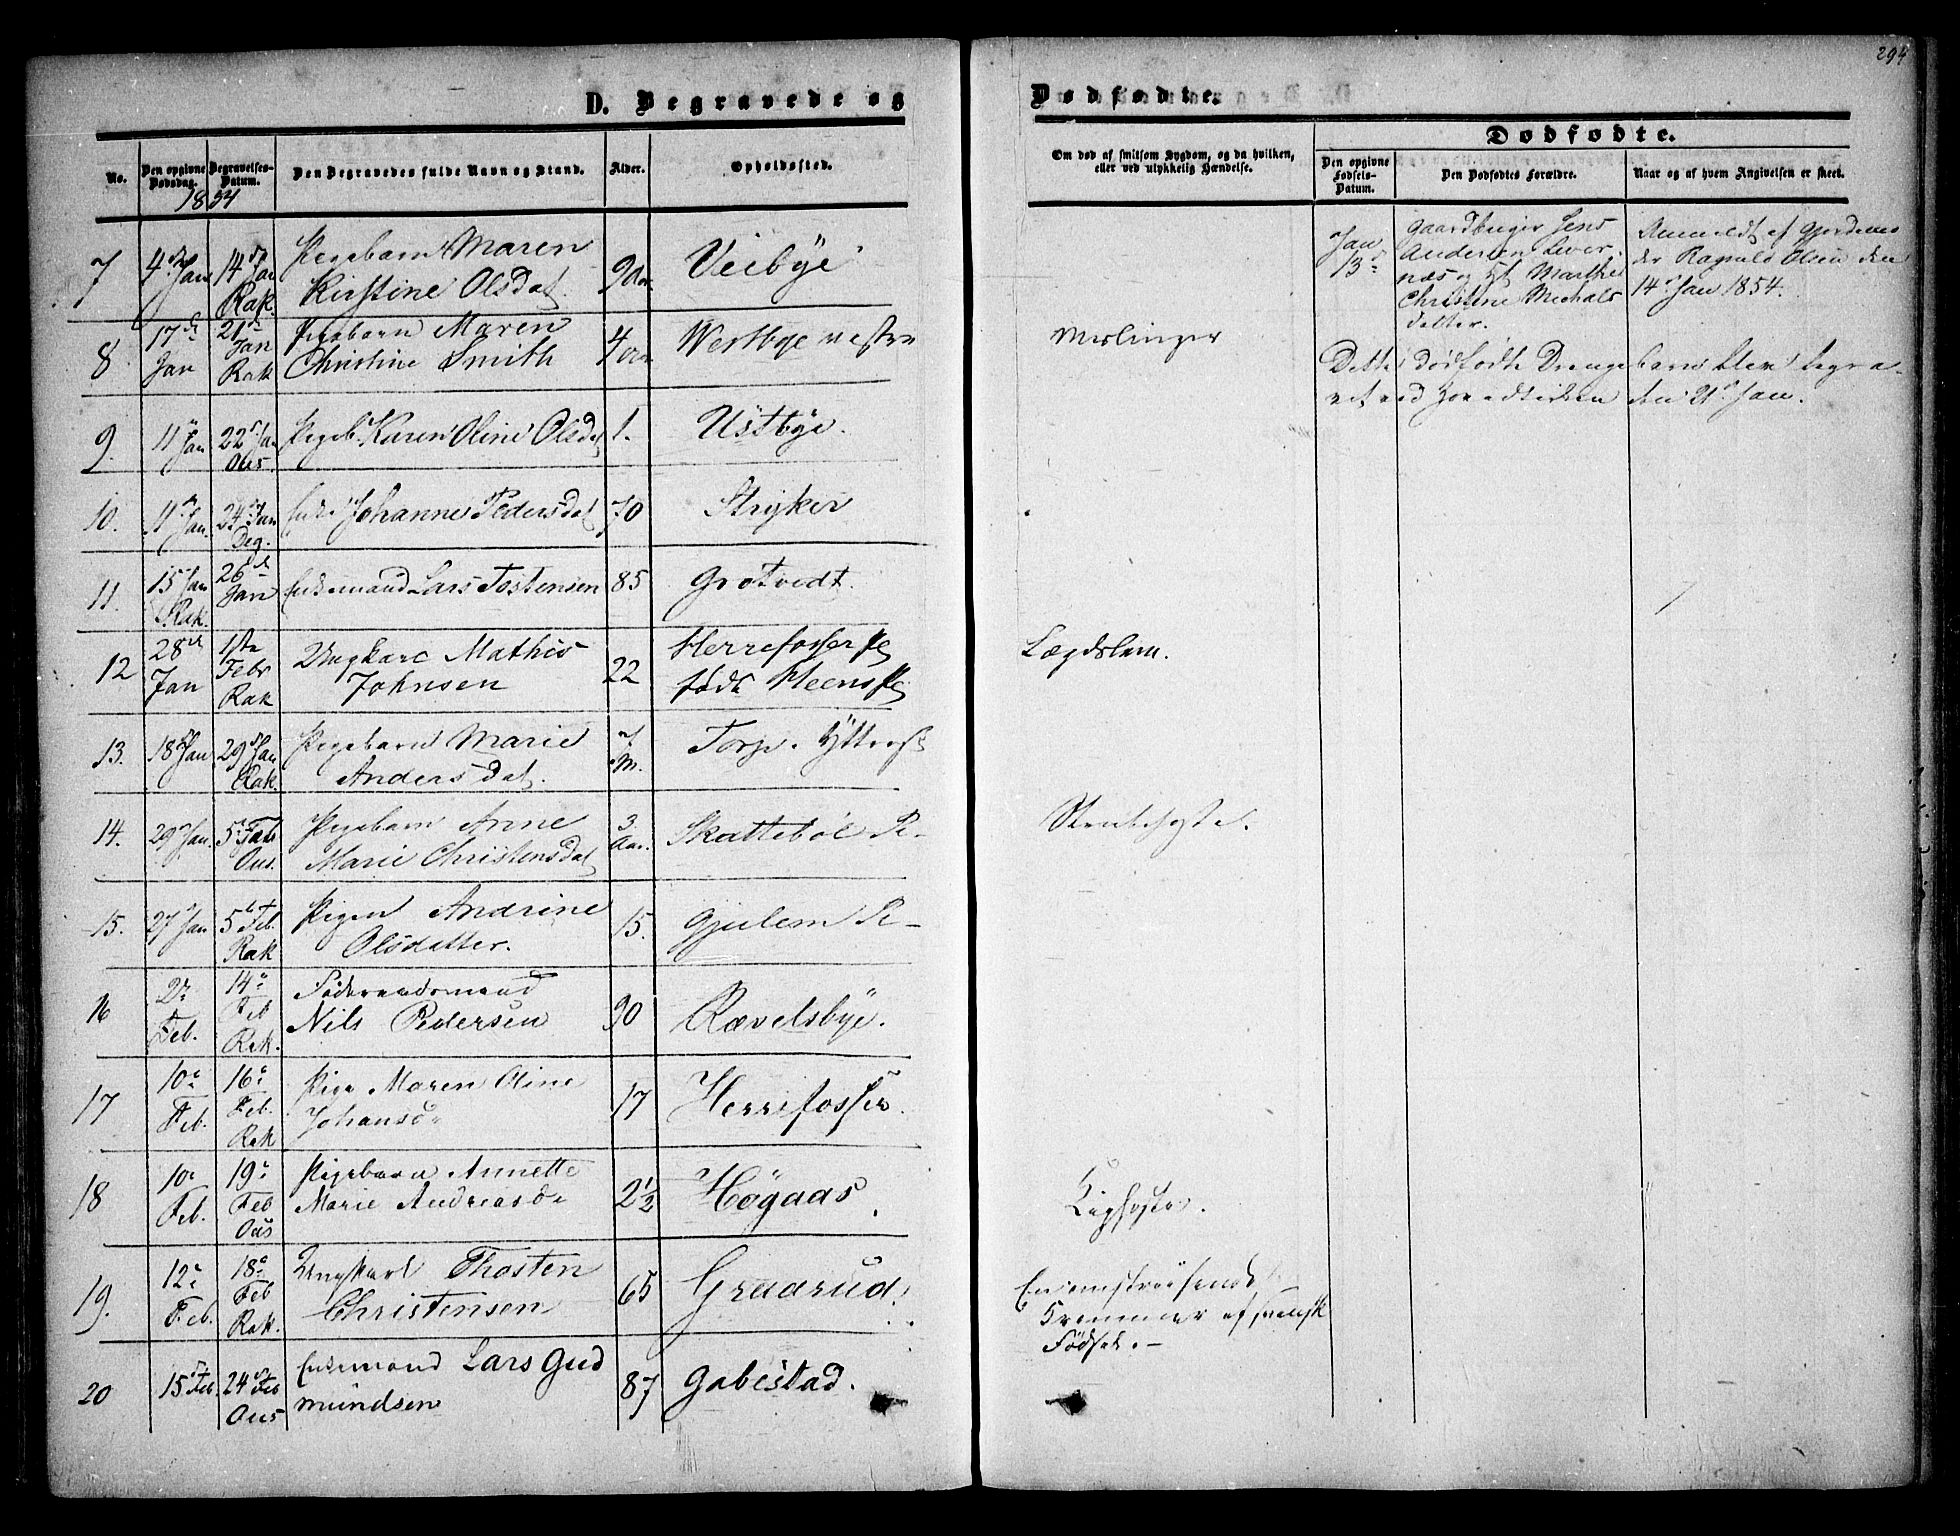 294
D. Begravede og
Dødfødte.
Dødfødte.
No.
Den opgivne Dødsdag.
Begravelses-Datum.
Den Begravedes fulde Navn og Stand.
Alder.
Opholdssted.
Om død af smitsom Sygdom, og da hvilken,
eller ved ulykkelig Hændelse.
Den opgivne Fødsels-Datum.
Den Dødfødtes Forældre.
Naar og af hvem Angivelsen er skeet.
1854
7 4de Jan 14de Jan Rak Pigebarn Maren
Kirstine Olsdat. 9 Aar Veibye
Jan 13de
Gaardbruger Jens
Andersen
næs og Marthe
Christine Michals
datter.
Anmeldt af
der Ragnild Olsen den
14de Jan 1854.
8 17de Jan 21de Jan Rak Pigebarn Maren
Christine Smith 4 Westbye
Meslinger
Dette dødfødte Drengebarn blev begra-
vet ved Hovedkirken den 21de Jan.
9. 11 Jan 22 Jan Ous. Pigeb. Karen Oline Olsdat 1. Ustbye.
10. 11 Jan. 24 Jan Deg. Enke Johanne Pedersdat 70 Stryker
11. 15 Jan Rak. 26de Jan Enkemand Lars Tostensen 85 Grotvedt.
12 28de Jan 1ste Febr Rak Ungkarl Mathis
Johnsen 22 Herrefosser
født Heens
Lægdslem.
13. 18 Jan 29 Jan Rak. Pigebarn Marie
Andersdat. 7 M. Torp.
14. 29 Jan. 5te Feb Ous. Pigebarn Anne
Marie Christensdat 3 Aar. Skattebøl
Strubehoste.
15. 27 Jan 5te Feb. Rak Pigen Andrine
Olsdatter. 15. Gjulem
16 2de Feb. 14de Feb Rak. Føderaadsmand
Nils Pedersen 90 Rævelsbye.
17 10de Feb. 16de Feb. Rak Pige Maren Oline
Johansd 17 Herrefosser.
18 10de Feb. 19de Feb Ous Pigebarn Annette
Marie Andreasd 2½ Høgaas
Kighoste.
19. 12te Feb. 18de Feb Rak. Ungkarl Thosten
Christensen 65 Graarud.
En omstreifende
Kræmmer af svensk
Fødsel.
20 15 Feb. 24 Feb Ous Enkemand Lars Gud
mundsen 87 Gabestad.